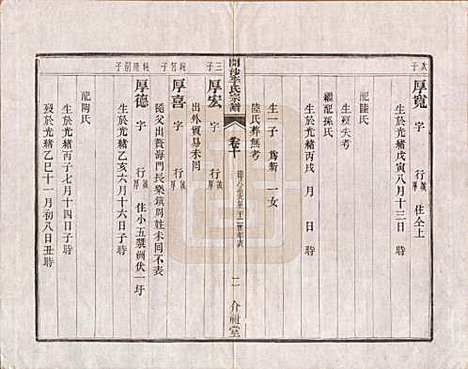 長子
厚寬 字 行 住仝上
生於光緒戊寅八月十三日 時
配陸氏
生歿失考
繼配孫氏
生於光緒丙戌 月 日 時
生一子 一女
陸氏葬無考
開沙李氏宗譜 卷十 二 介祉堂
三子
厚宏 字 行
出外貿易未回
厚喜 字 行
隨父出贅海門長樂鎮周姓未回不表
厚德 字 行 住小五 洲伏一圩
生於光緒乙亥六月十六日子時
配陶氏
生於光緒丙子七月十四日子時
歿於光緒乙巳十一月初八日丑時